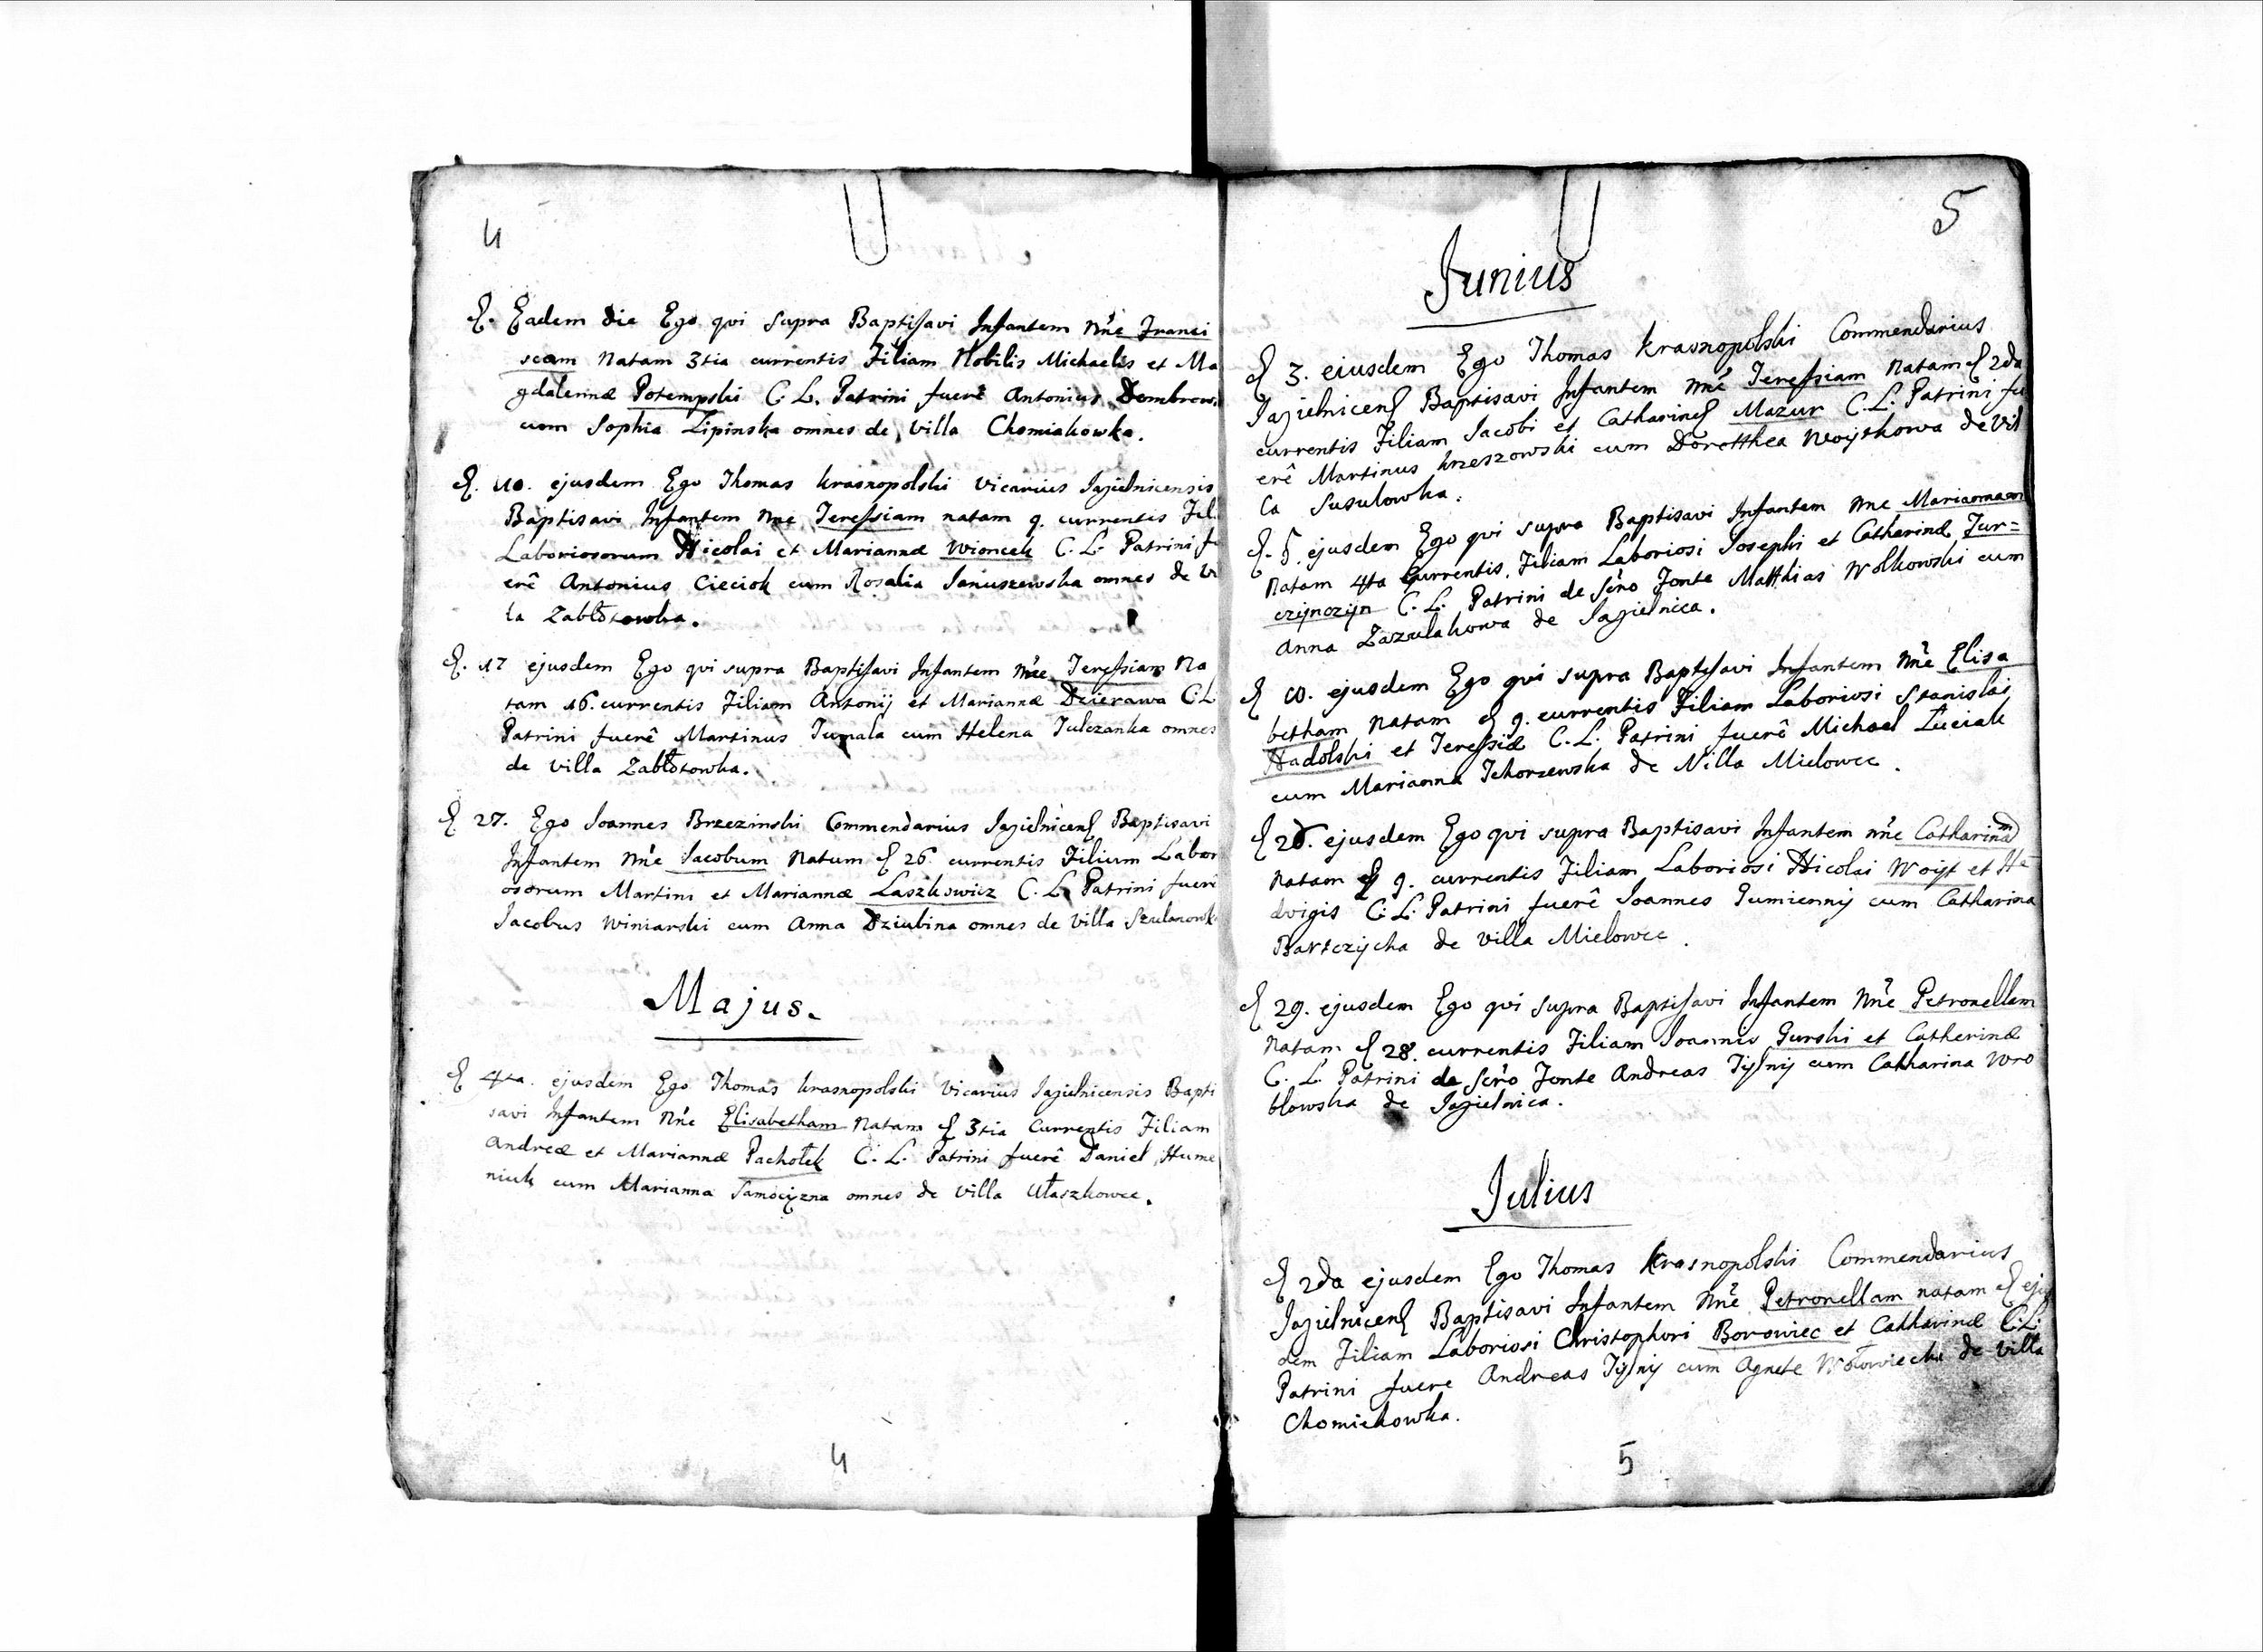 4
D. Eadem die Ego qvi supra Baptisavi Infantem Nn̄e Franci
scam Natam 3tia currentis Filiam Nobilis Michaelis et Ma
gdalennæ Potempski C. L. Patrini fuerê Antonius Dembrow
cum Sophia Lipinska omnes de Villa Chomiakowka.
D. 10. ejusdem Ego Thomas Krasnopolski Vicarius Jagielnicensis
Baptisavi Infantem Nn̄e Teressiam natam 9. currentis Fil
Laboriosorum Nicolai et Mariannæ Wioncek C. L. Patrini fu
erê Antonius Cieciok cum Rosalia Januszewska omnes de Vi
la Zabłotowka.
D. 17 ejusdem Ego qvi supra Baptisavi Infantem Nn̄e Teressiam Na
tam 16. currentis Filiam Antonij et Mariannæ Dzierawa C L
Patrini fuerê Martinus Tupala cum Helena Tulczanka omnes
de Villa Zabłotowka.
D 27. Ego Joannes Brzezinski Commendarius Jagielnicens Baptisavi
Infantem Nn̄e Jacobum Natum D 26 currentis Filium Labori
osorum Martini et Mariannæ Laszkowicz C. L. Patrini fuere
Jacobus Winiarski cum Anna Dziubina omnes de Villa Szulanowk
Majus.
D 4ta. ejusdem Ego Thomas Krasnopolski Vicarius Jagielnicensis Bapti
savi Infantem Nn̄e Elisabetham Natam D 3tia Currentis Filiam
Andreæ et Mariannæ Pachołek C. L. Patrini fuerê Daniel Hume
niuk cum Marianna Samocijzna omnes de Villa Ułaszkowce.
4
5
Junius
D 3. eiusdem Ego Thomas Krasnopolski Commendarius
Jagielnicens Baptisavi Infantem Nn̄e Teressiam Natam D 2da
currentis Filiam Jacobi et Catharines Mazur C. L. Patrini fu
erê Martinus Krzeszowski cum Dorotthea Woijtkowa de Vil
la Susulowka.
D. 5. ejusdem Ego qvi supra Baptisavi Infantem Nn̄e Mariannam
Natam 4ta Currentis. Filiam Laboriosi Josephi et Catharinæ Jur=
czijnczijn C. L. Patrini de Scr̄o Fonte Matthias Wolkowski cum
Anna Zazulakowa de Jagielnica.
D 10. ejusdem Ego qvi supra Baptisavi Infantem Nn̄e Elisa
betham Natam D 9. currentis Filiam Laboriosi Stanislai
Hadolski et Teressiæ C. L. Patrini fuerê Michael Luciak
cum Marianna Tchorzewska de Villa Mielowce.
D 26. ejusdem Ego qvi supra Baptisavi Infantem Nn̄e Catharinam
Natam D 9. currentis Filiam Laboriosi Nicolai Woijt et He
dvigis C. L. Patrini fuerê Joannes Gumiennij cum Catharina
Bartczijcha de Villa Mielowce.
D 29. ejusdem Ego qvi supra Baptisavi Infantem Nn̄e Petronellam
Natam D 28. currentis Filiam Joannis Gurski et Catherinæ
C. L. Patrini de Scr̄o Fonte Andreas Tijsnij cum Catharina Wro
blowska de Jagielnica.
Julius
D 2da ejusdem Ego Thomas Krasnopolski Commendarius
Jagielnicens Baptisavi Infantem Nn̄e Petronellam natam D ejus
dem Filiam Laboriosi Christophori Borowiec et Catharinæ C. L.
Patrini fuere Andreas Tijsnij cum Agnete Wołowiecka de Villa
Chomiekowka.
5